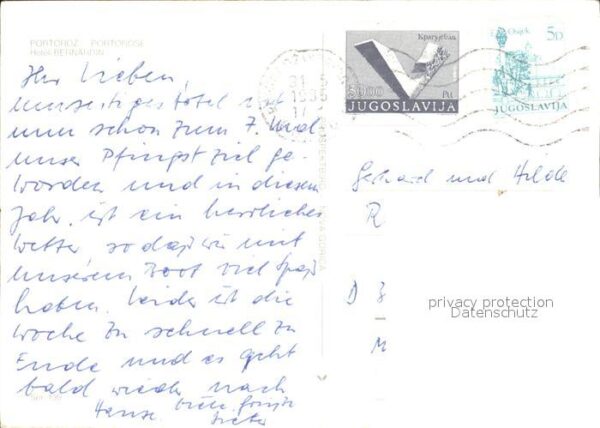 PORTOROŽ PORTOROSE
Hoteli BERNARDIN
Ihr Lieben,
umseitiges Hotel ist
nun schon zum 7. Mal
unser Pfingstziel ge-
worden und in diesem
Jahr ist ein herrliches
Wetter so daß wir mit
unserem Boot viel Spaß
haben. Leider ist die
Woche zu schnell zu
Ende und es geht
bald wieder nach
Hause. Viele Grüße
Dieter
Крагујевац
5000
JUGOSLAVIJA
Osijek
5D
JUGOSLAVIJA
31
17
Gerhard und Hilde
R
D 8
M
privacy protection
Datenschutz